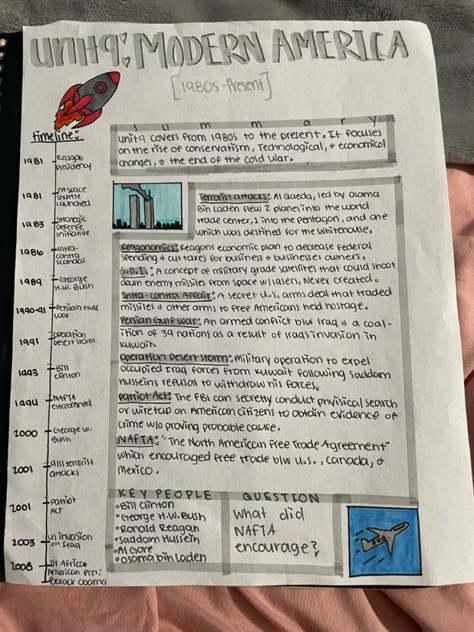 UNIT 9: MODERN AMERICA
[1980s-Present]
summary
Unit 9 covers from 1980s to the present. It focuses
on the rise of conservatism, technological, & economical
changes, & the end of the Cold War.
timeline:
1981 Reagan Presidency
1981 1st space shuttle launched
1983 Strategic Defense Initiative
1986 Intra-contra scandal
1989 George H.W. Bush
1990-91 Persian Gulf War
1991 Operation Desert Storm
1993 Bill Clinton
1994 NAFTA established
2000 George W. Bush
2001 9/11 terrorist attacks
2001 Patriot Act
2003 US invasion on Iraq
2008 1st African American Pres: Barack Obama
Terrorist attacks: Al Qaeda, led by Osama
Bin Laden flew 2 planes into the world
trade center, 1 into the pentagon, and one
which was destined for the Whitehouse.
Reaganomics: Reagans economic plan to decrease federal
spending & cut taxes for business & businesses owners.
S.D.I.: A concept of military grade satellites that could shoot
down enemy missiles from space w/ lasers. Never created.
Intra-contra Affair: A secret U.S. arms deal that traded
missiles & other arms to free Americans held hostage.
Persian Gulf War: An armed conflict b/w Iraq & a coal-
ition of 39 nations as a result of Iraqs invasion in
Kuwait.
Operation Desert Storm: Military operation to expel
occupied Iraq forces from Kuwait following Saddam
Husseins refusal to withdraw his forces.
Patriot Act: The FBI can secretly conduct phyisical search
or wiretap on American citizens to obtain evidence of
crime w/o proving probable cause.
NAFTA: "The North American Free Trade Agreement"
which encouraged free trade b/w U.S., Canada, &
Mexico.
KEY PEOPLE
•Bill Clinton
•George H.W. Bush
•Ronald Reagan
•Saddam Hussein
•Al Gore
•Osama bin Laden
QUESTION
What did
NAFTA
encourage?